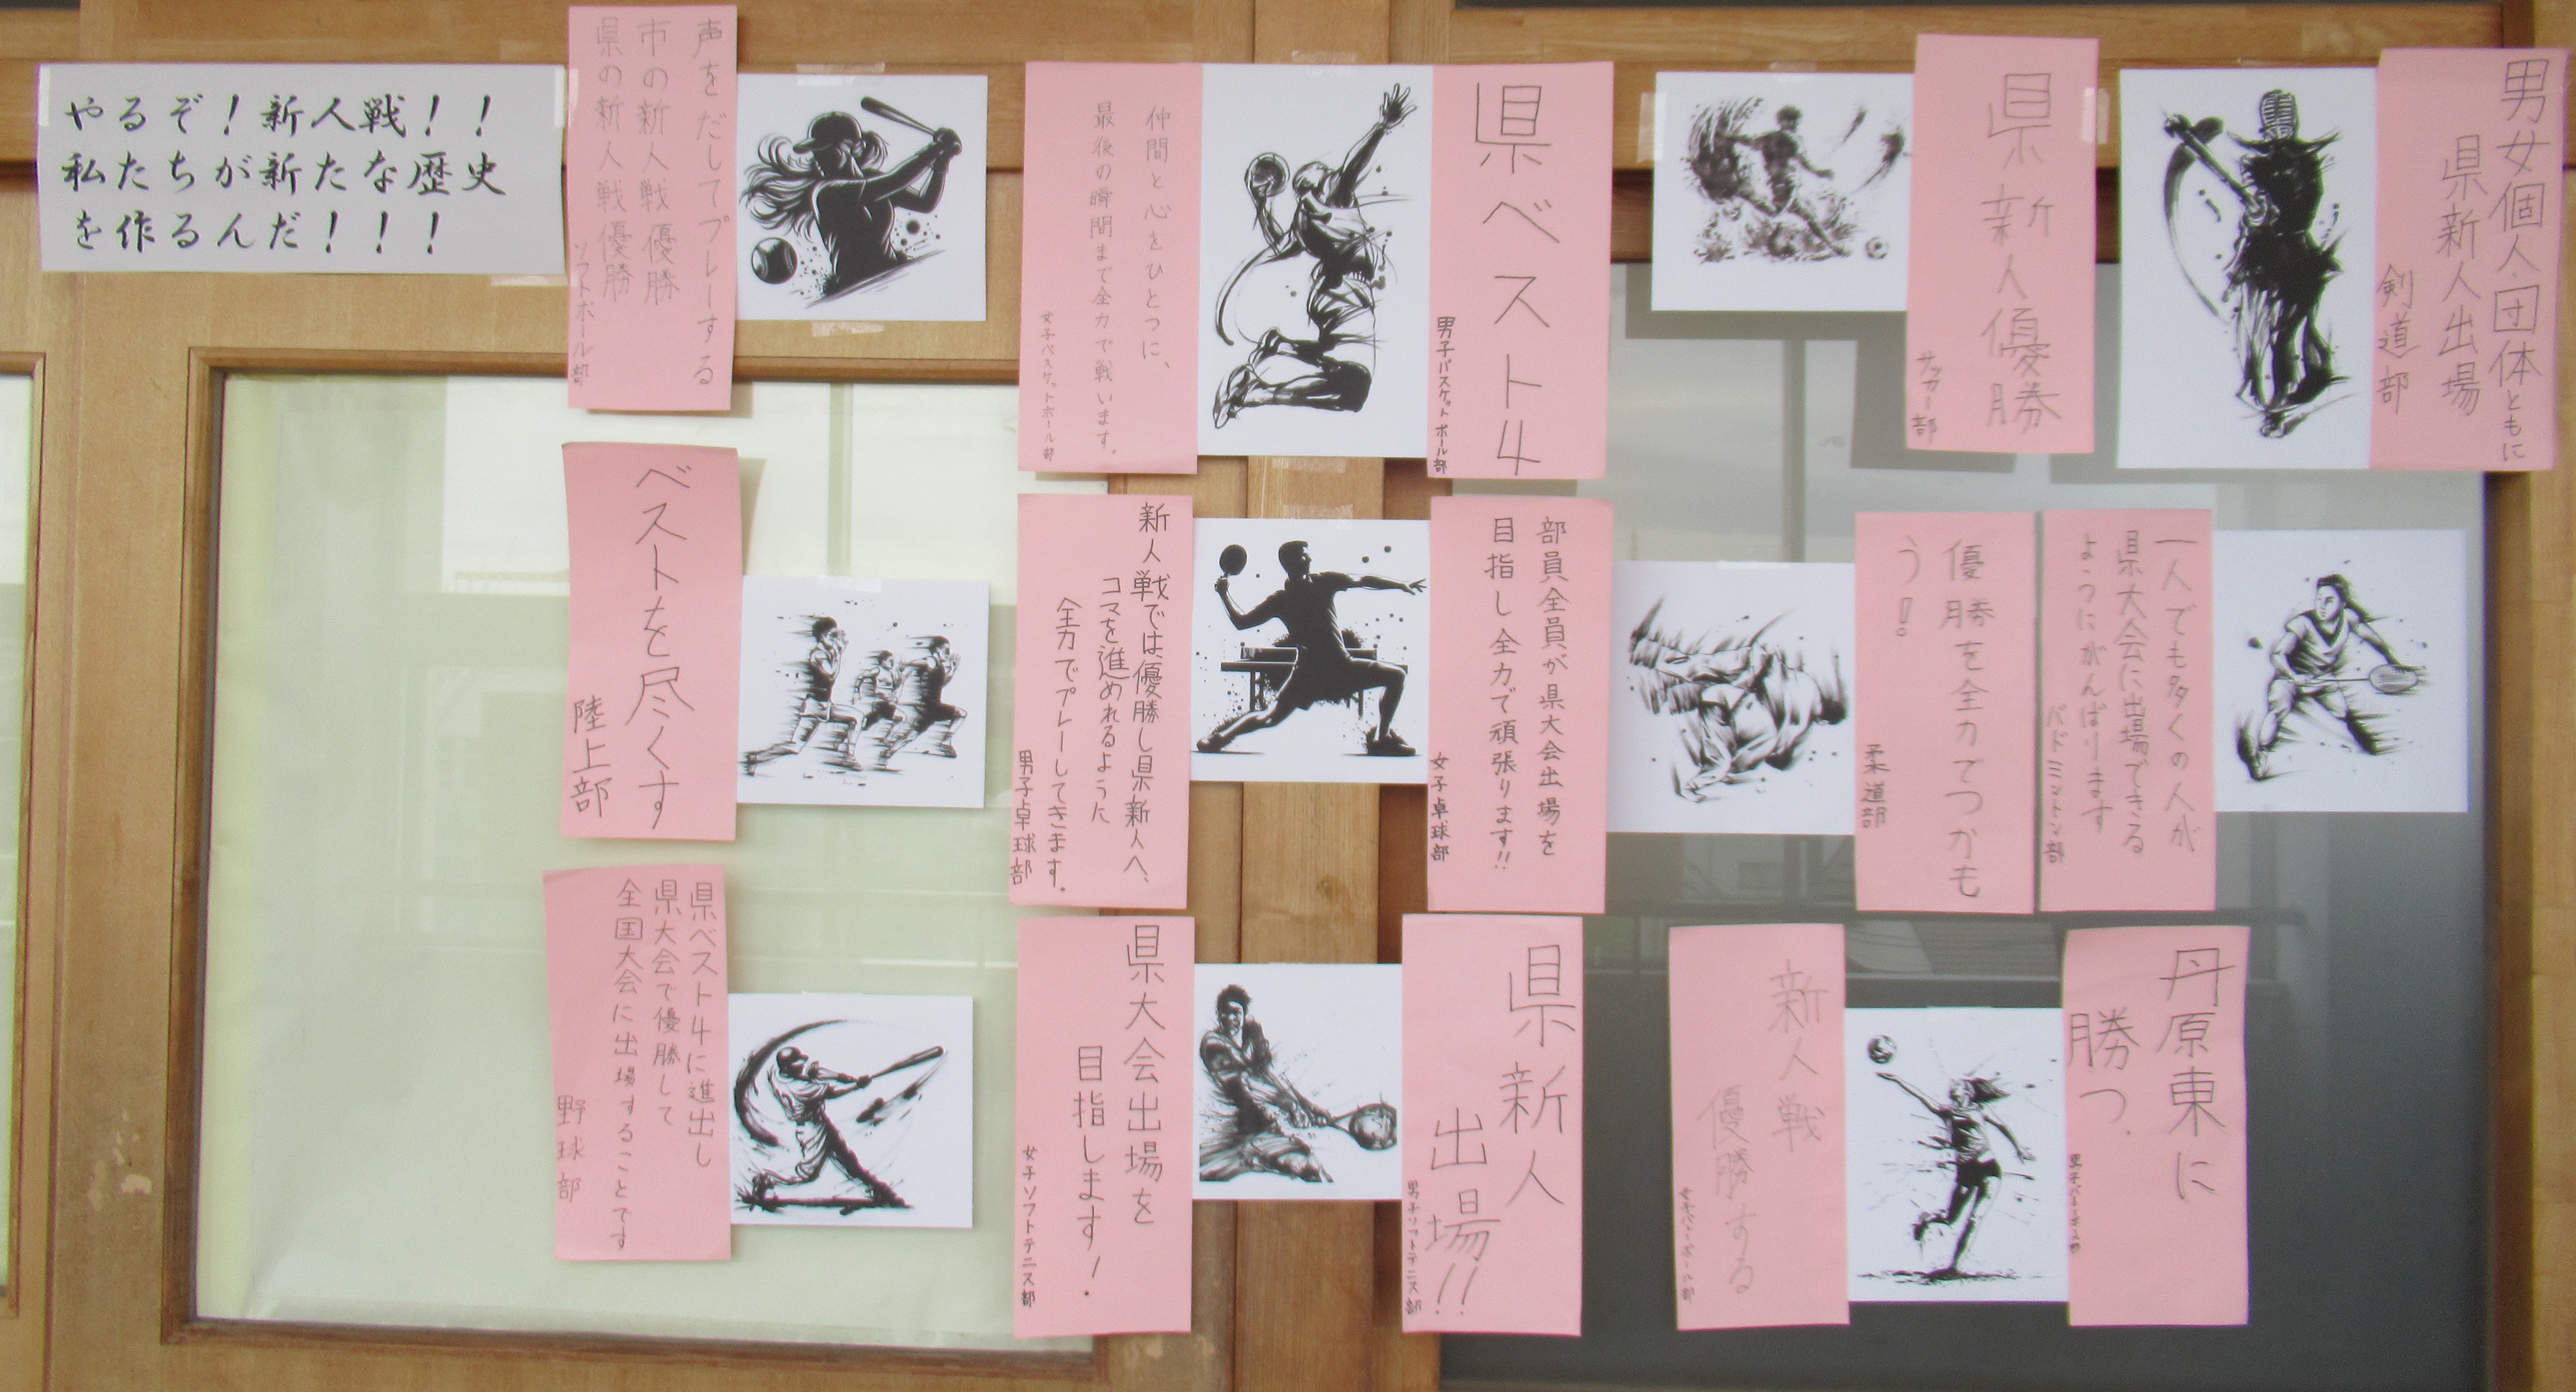 やるぞ！新人戦！！
私たちが新たな歴史
を作るんだ！！！
声をだしてプレーする
市の新人戦優勝
県の新人戦優勝
ソフトボール部
仲間と心をひとつに、
最後の瞬間まで全力で戦います。
女子バスケットボール部
県ベスト4
男子バスケットボール部
県新人優勝
サッカー部
男女個人・団体ともに
県新人出場
剣道部
ベストを尽くす
陸上部
新人戦では優勝し県新人へ、
コマを進めれるように
全力でプレーしてきます。
男子卓球部
部員全員が県大会出場を
目指し全力で頑張ります!!
女子卓球部
優勝を全力でつかも
う！
柔道部
一人でも多くの人が
県大会に出場できる
ようにがんばります
バドミントン部
県ベスト4に進出し
県大会で優勝して
全国大会に出場することです
野球部
県大会出場を
目指します！
女子ソフトテニス部
県新人
出場!!
男子ソフトテニス部
新人戦
優勝する
女子バレーボール部
丹原東に
勝つ.
男子バレーボール部